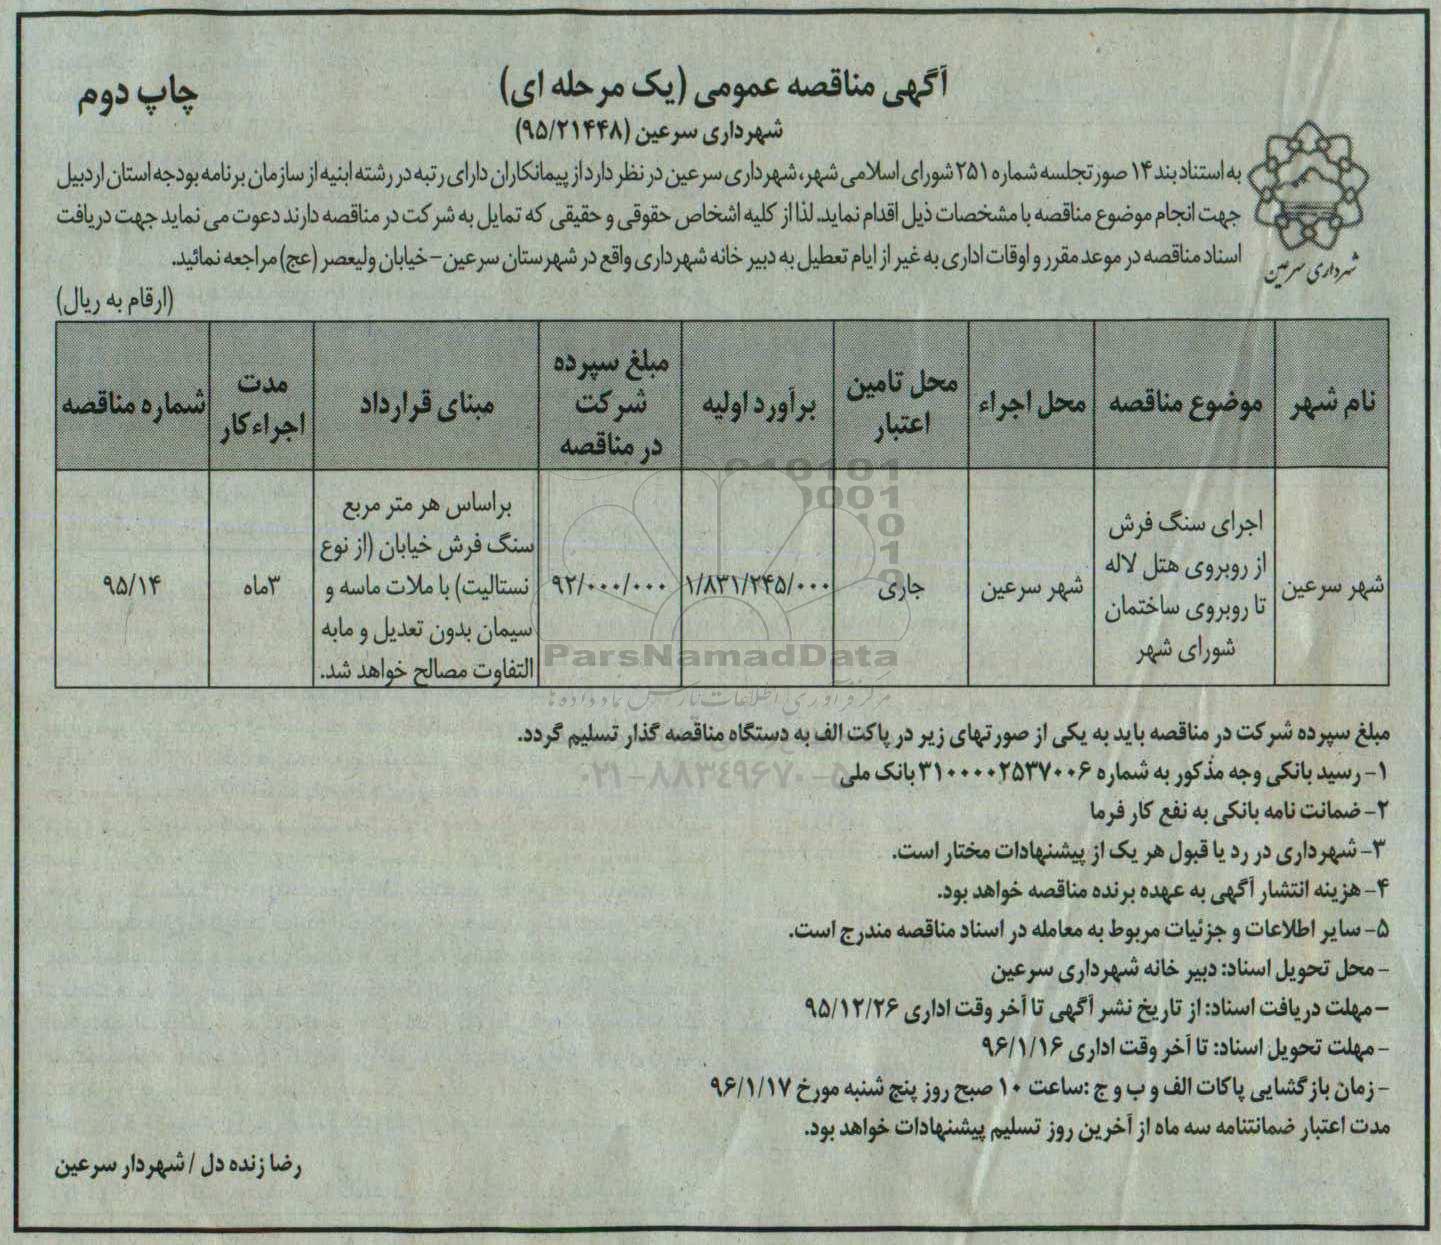 آگهی مناقصه عمومی (یک مرحله ای)
چاپ دوم
شهرداری سرعین (۹۵/۲۱۴۴۸)
شهرداری سرعین
به استناد بند ۱۴ صورتجلسه شماره ۲۵۱ شورای اسلامی شهر، شهرداری سرعین در نظر دارد از پیمانکاران دارای رتبه در رشته ابنیه از سازمان برنامه بودجه استان اردبیل
جهت انجام موضوع مناقصه با مشخصات ذیل اقدام نماید. لذا از کلیه اشخاص حقوقی و حقیقی که تمایل به شرکت در مناقصه دارند دعوت می نماید جهت دریافت
اسناد مناقصه در موعد مقرر و اوقات اداری به غیر از ایام تعطیل به دبیر خانه شهرداری واقع در شهرستان سرعین-خیابان ولیعصر (عج) مراجعه نمائید.
(ارقام به ریال)
نام شهر
موضوع مناقصه
محل اجراء
محل تامین
اعتبار
برآورد اولیه
مبلغ سپرده
شرکت
در مناقصه
مبنای قرارداد
مدت
اجراءکار
شماره مناقصه
شهر سرعین
اجرای سنگ فرش
از روبروی هتل لاله
تا روبروی ساختمان
شورای شهر
شهر سرعین
جاری
۱/۸۳۱/۲۴۵/۰۰۰
۹۲/۰۰۰/۰۰۰
براساس هر متر مربع
سنگ فرش خیابان (از نوع
نستالیت) با ملات ماسه و
سیمان بدون تعدیل و مابه
التفاوت مصالح خواهد شد.
۳ماه
۹۵/۱۴
ParsNamadData
مرکز فرآوری اطلاعات پارس نماد داده ها
۰۲۱-۸۸۳۴۹۶۷۰-۵
مبلغ سپرده شرکت در مناقصه باید به یکی از صورتهای زیر در پاکت الف به دستگاه مناقصه گذار تسلیم گردد.
۱- رسید بانکی وجه مذکور به شماره ۳۱۰۰۰۰۲۵۳۷۰۰۶ بانک ملی
۲- ضمانت نامه بانکی به نفع کار فرما
۳- شهرداری در رد یا قبول هر یک از پیشنهادات مختار است.
۴- هزینه انتشار آگهی به عهده برنده مناقصه خواهد بود.
۵- سایر اطلاعات و جزئیات مربوط به معامله در اسناد مناقصه مندرج است.
- محل تحویل اسناد: دبیر خانه شهرداری سرعین
- مهلت دریافت اسناد: از تاریخ نشر آگهی تا آخر وقت اداری ۹۵/۱۲/۲۶
- مهلت تحویل اسناد: تا آخر وقت اداری ۹۶/۱/۱۶
- زمان بازگشایی پاکات الف و ب و ج :ساعت ۱۰ صبح روز پنج شنبه مورخ ۹۶/۱/۱۷
مدت اعتبار ضمانتنامه سه ماه از آخرین روز تسلیم پیشنهادات خواهد بود.
رضا زنده دل / شهردار سرعین